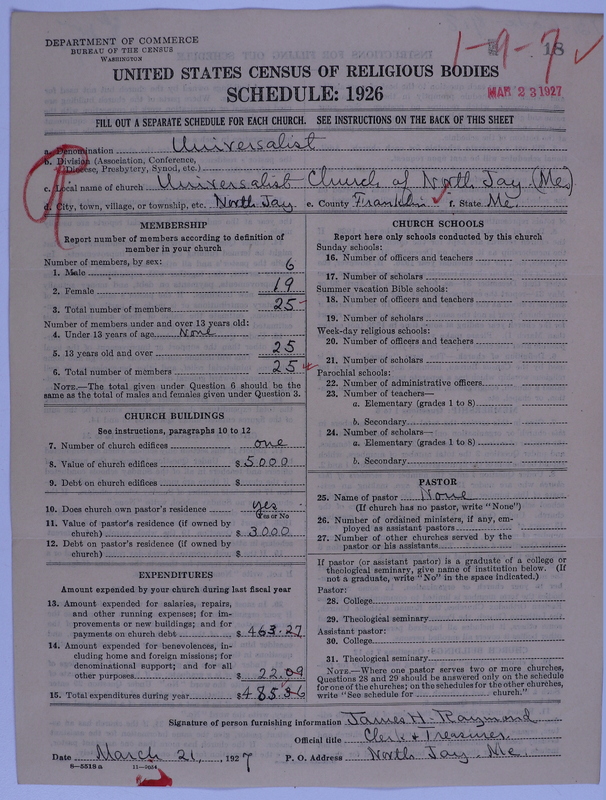 DEPARTMENT OF COMMERCE
BUREAU OF THE CENSUS
WASHINGTON
1-9-7
18
UNITED STATES CENSUS OF RELIGIOUS BODIES
SCHEDULE: 1926
MAR 23 1927
FILL OUT A SEPARATE SCHEDULE FOR EACH CHURCH. SEE INSTRUCTIONS ON THE BACK OF THIS SHEET
a. Denomination Universalist
b. Division (Association, Conference, Diocese, Presbytery, Synod, etc.)
c. Local name of church Universalist Church of North Jay (Me)
d. City, town, village, or township, etc. North Jay e. County Franklin f. State Me.
MEMBERSHIP
Report number of members according to definition of
member in your church
Number of members, by sex:
1. Male 6
2. Female 19
3. Total number of members 25
Number of members under and over 13 years old:
4. Under 13 years of age None
5. 13 years old and over 25
6. Total number of members 25
NOTE.—The total given under Question 6 should be the
same as the total of males and females given under Question 3.
CHURCH BUILDINGS
See instructions, paragraphs 10 to 12
7. Number of church edifices one
8. Value of church edifices $5000
9. Debt on church edifices $
10. Does church own pastor's residence yes
Yes or No
11. Value of pastor's residence (if owned by
church) $ 3000
12. Debt on pastor's residence (if owned by
church) $
EXPENDITURES
Amount expended by your church during last fiscal year
13. Amount expended for salaries, repairs,
and other running expenses; for im-
provements or new buildings; and for
payments on church debt $ 463.27
14. Amount expended for benevolences, in-
cluding home and foreign missions; for
denominational support; and for all
other purposes $ 22.09
15. Total expenditures during year $ 485.36
CHURCH SCHOOLS
Report here only schools conducted by this church
Sunday schools:
16. Number of officers and teachers
17. Number of scholars
Summer vacation Bible schools:
18. Number of officers and teachers
19. Number of scholars
Week-day religious schools:
20. Number of officers and teachers
21. Number of scholars
Parochial schools:
22. Number of administrative officers
23. Number of teachers—
a. Elementary (grades 1 to 8)
b. Secondary
24. Number of scholars—
a. Elementary (grades 1 to 8)
b. Secondary
PASTOR
25. Name of pastor None
(If church has no pastor, write "None")
26. Number of ordained ministers, if any, em-
ployed as assistant pastors
27. Number of other churches served by the
pastor or his assistants
If pastor (or assistant pastor) is a graduate of a college or
theological seminary, give name of institution below. (If
not a graduate, write "No" in the space indicated.)
Pastor:
28. College
29. Theological seminary
Assistant pastor:
30. College
31. Theological seminary
NOTE.—Where one pastor serves two or more churches,
Questions 28 and 29 should be answered only on the schedule
for one of the churches; on the schedules for the other churches,
write "See schedule for church."
Signature of person furnishing information James H. Raymond
Official title Clerk & Treasurer
Date March 21, 1927 P. O. Address North Jay Me.
8-5518 a 11-9034